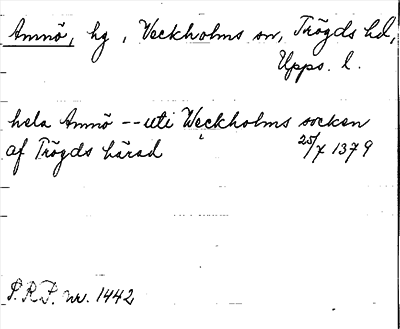 Amnö, hg, Veckholms sn, Trögds hd,
Upps. l.
hela Amnö -- uti Weckholms socken
af Trögds härad 25/7 1379
S.R.P. nr. 1442